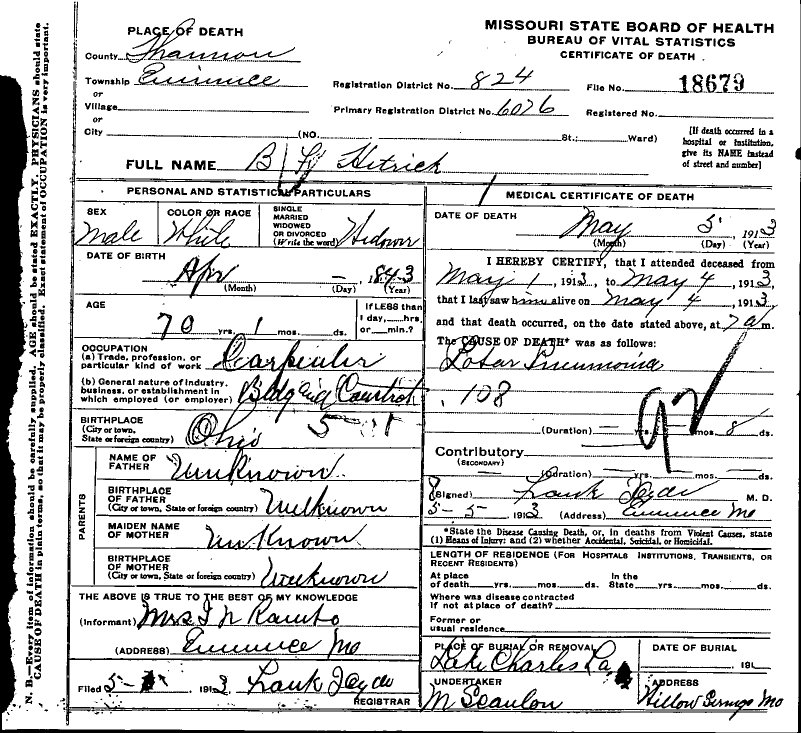 MISSOURI STATE BOARD OF HEALTH
BUREAU OF VITAL STATISTICS
CERTIFICATE OF DEATH
PLACE OF DEATH
County Shannon
Township Eminence
or
Village
or
City (NO. St.; Ward)
Registration District No. 824 File No. 18679
Primary Registration District No. 6076 Registered No.
[If death occurred in a hospital or institution, give its NAME instead of street and number]
FULL NAME B Hetrick
PERSONAL AND STATISTICAL PARTICULARS
SEX Male
COLOR OR RACE White
SINGLE MARRIED WIDOWED OR DIVORCED (Write the word) Widower
DATE OF BIRTH Apr — 1843
(Month) (Day) (Year)
AGE 70 yrs. 1 mos. ds.
If LESS than 1 day, hrs. or min.?
OCCUPATION
(a) Trade, profession, or particular kind of work Carpenter
(b) General nature of industry, business, or establishment in which employed (or employer) Bldg and
BIRTHPLACE (City or town, State or foreign country) Ohio
PARENTS
NAME OF FATHER Unknown
BIRTHPLACE OF FATHER (City or town, State or foreign country) Unknown
MAIDEN NAME OF MOTHER Unknown
BIRTHPLACE OF MOTHER (City or town, State or foreign country) Unknown
THE ABOVE IS TRUE TO THE BEST OF MY KNOWLEDGE
(Informant) Mrs
(ADDRESS) Eminence Mo
Filed 5- 1913 Frank
REGISTRAR
MEDICAL CERTIFICATE OF DEATH
DATE OF DEATH May 5, 1913
(Month) (Day) (Year)
I HEREBY CERTIFY, that I attended deceased from
May 1, 1913, to May 4, 1913
that I last saw him alive on May 4, 1913
and that death occurred, on the date stated above, at 7 a m.
The CAUSE OF DEATH* was as follows:
Lobar Pneumonia
108
92
(Duration) — yrs. — mos. 8 ds.
Contributory
(SECONDARY)
(Duration) yrs. mos. ds.
(Signed) Frank M. D.
5-5 1913 (Address) Eminence Mo
*State the Disease Causing Death, or, in deaths from Violent Causes, state
(1) Means of Injury; and (2) whether Accidental, Suicidal, or Homicidal.
LENGTH OF RESIDENCE (FOR HOSPITALS INSTITUTIONS, TRANSIENTS, OR RECENT RESIDENTS)
At place of death yrs. mos. ds. In the State yrs. mos. ds.
Where was disease contracted
if not at place of death?
Former or
usual residence
PLACE OF BURIAL OR REMOVAL Lake Charles La
DATE OF BURIAL 191
UNDERTAKER M Scanlon
ADDRESS Willow Springs Mo
N. B.—Every item of information should be carefully supplied. AGE should be stated EXACTLY. PHYSICIANS should state
CAUSE OF DEATH in plain terms, so that it may be properly classified. Exact statement of OCCUPATION is very important.